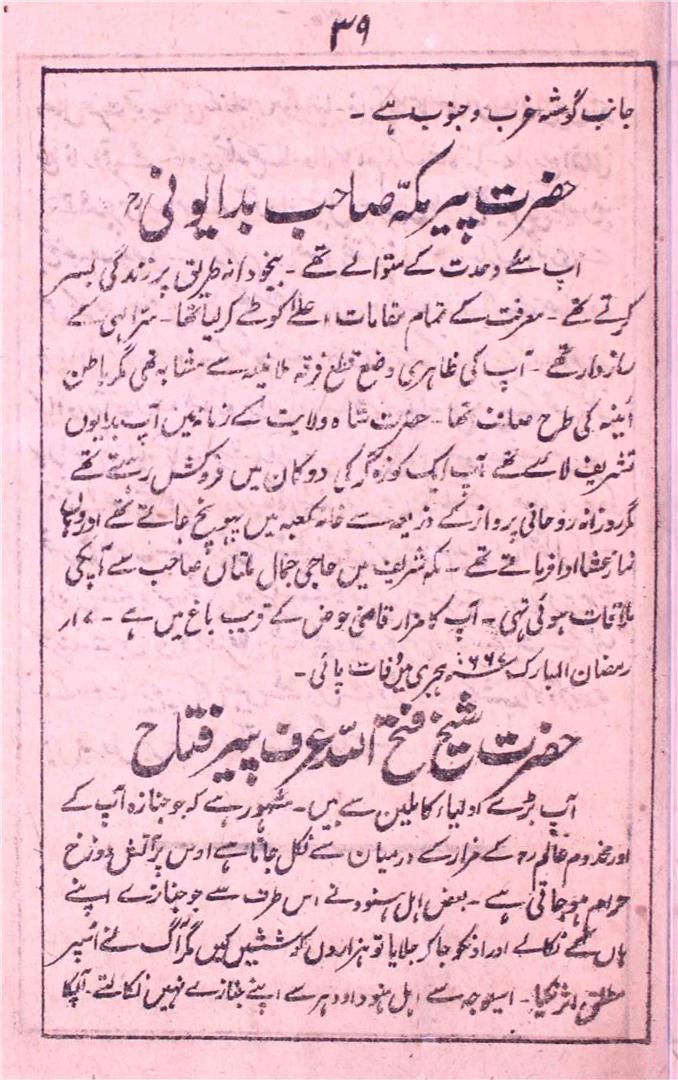 ۳۹
جانب گوشہ غرب و جنوب ہے ۔
حضرت پیر مکہ صاحب بدایونی رح
آپ مئے وحدت کے متوالے تھے ۔ بیخودانہ طریق پر زندگی بسر
کرتے تھے ۔ معرفت کے تمام مقامات اعلےٰ کو طے کر لیا تھا ۔ سر الٰہی کے
رازدار تھے ۔ آپ کی ظاہری وضع قطع فرقہ ملامتیہ سے مشابہ تھی مگر باطن
آئینہ کی طرح صاف تھا ۔ حضرت شاہ ولایت کے زمانہ میں آپ بدایوں
تشریف لائے تھے آپ ایک کوزہ گر کی دوکان میں فروکش رہتے تھے
مگر روزانہ روحانی پرواز کے ذریعہ سے خانہ کعبہ میں پہونچ جاتے تھے اور وہاں
نماز عشا ادا فرماتے تھے ۔ مکہ شریف میں حاجی جمال ملتانی صاحب سے آپکی
ملاقات ہوئی تہی ۔ آپ کا مزار قاضی حوض کے قریب باغ میں ہے ۔ ۱۷ر
رمضان المبارک ۶۶۷ ہجری میں وفات پائی ۔
حضرت شیخ فتح اللہ عرف پیر فتاح
آپ بڑے اولیاء کاملین سے ہیں ۔ مشہور ہے کہ جو جنازہ آپ کے
اور مخدوم عالم رح کے مزار کے درمیان سے نکل جاتا ہے اوس پر آتش دوزخ
حرام ہو جاتی ہے ۔ بعض اہل ہنود نے اس طرف سے جو جنازے اپنے
ہاں کے نکالے اور اونکو جا کر جلایا تو ہزاروں کوششیں کیں مگر آگ نے اُسپر
مطلق اثر نکیا ۔ اسیوجہ سے اہل ہنود اودہر سے اپنے جنازے نہیں نکالتے ۔ آپکا